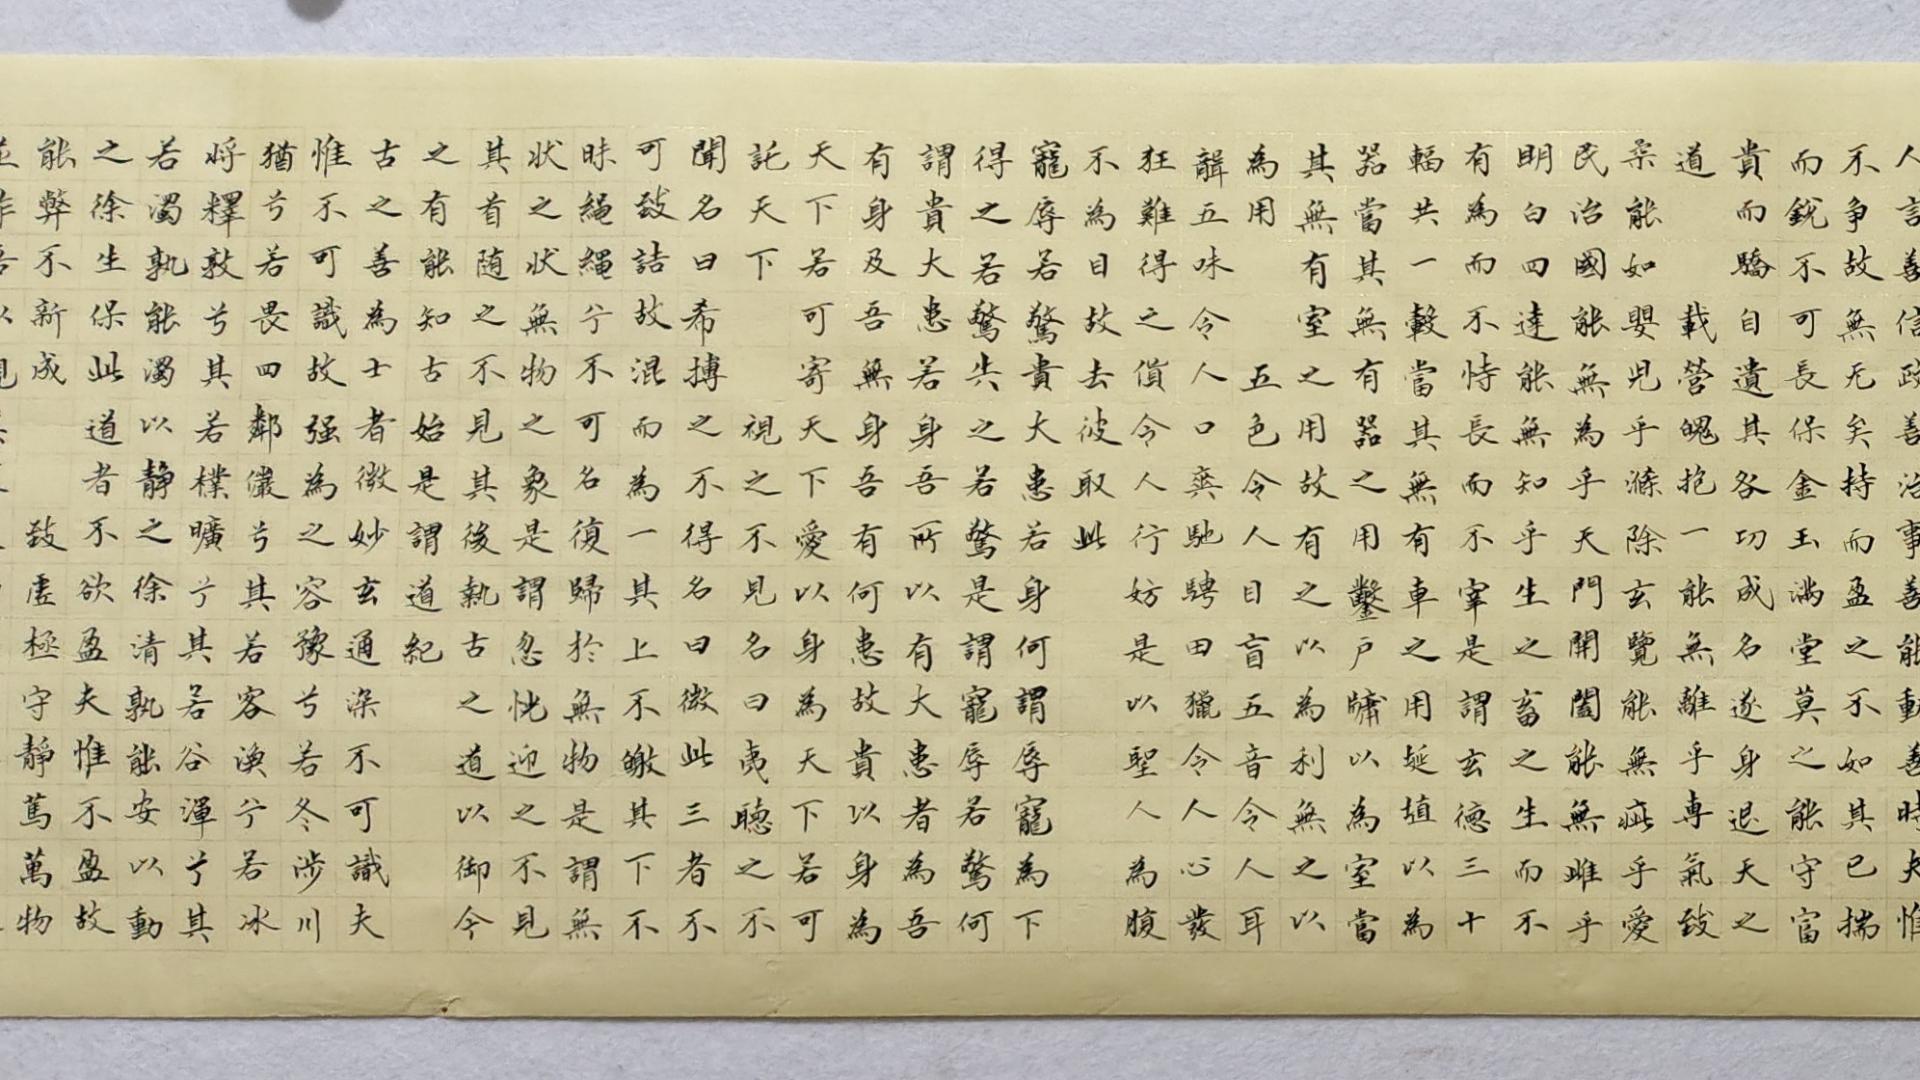 人言善信政善治事善能動善時夫惟
不争故無尤矣持而盈之不如其已揣
而銳不可長保金玉滿堂莫之能守富
貴而驕自遺其咎功成名遂身退天之
道 載營魄抱一能無離乎専氣致
柔能如嬰児乎滌除玄覽能無疵乎愛
民治國能無為乎天門開闔能無雌乎
明白四達能無知乎生之畜之生而不
有為而不恃長而不宰是謂玄德三十
輻共一轂當其無有車之用埏埴以為
器當其無有器之用鑿戶牖以為室當
其無有室之用故有之以為利無之以
為用 五色令人目盲五音令人耳
聾五味令人口爽馳騁田獵令人心發
狂難得之貨令人行妨是以聖人為腹
不為目故去彼取此
寵辱若驚貴大患若身何謂辱寵為下
得之若驚失之若驚是謂寵辱若驚何
謂貴大患若身吾所以有大患者為吾
有身及吾無身吾有何患故貴以身為
天下若可寄天下愛以身為天下若可
託天下 視之不見名曰夷聽之不
聞名曰希搏之不得名曰微此三者不
可致詰故混而為一其上不皦其下不
昧繩繩兮不可名復歸於無物是謂無
狀之狀無物之象是謂忽恍迎之不見
其首随之不見其後執古之道以御今
之有能知古始是謂道紀
古之善為士者微妙玄通深不可識夫
惟不可識故强為之容豫兮若冬涉川
猶兮若畏四鄰儼兮其若客渙兮若冰
将釋敦兮其若樸曠兮其若谷渾兮其
若濁孰能濁以静之徐清孰能安以動
之徐生保此道者不欲盈夫惟不盈故
能弊不新成 致虛極守靜篤萬物